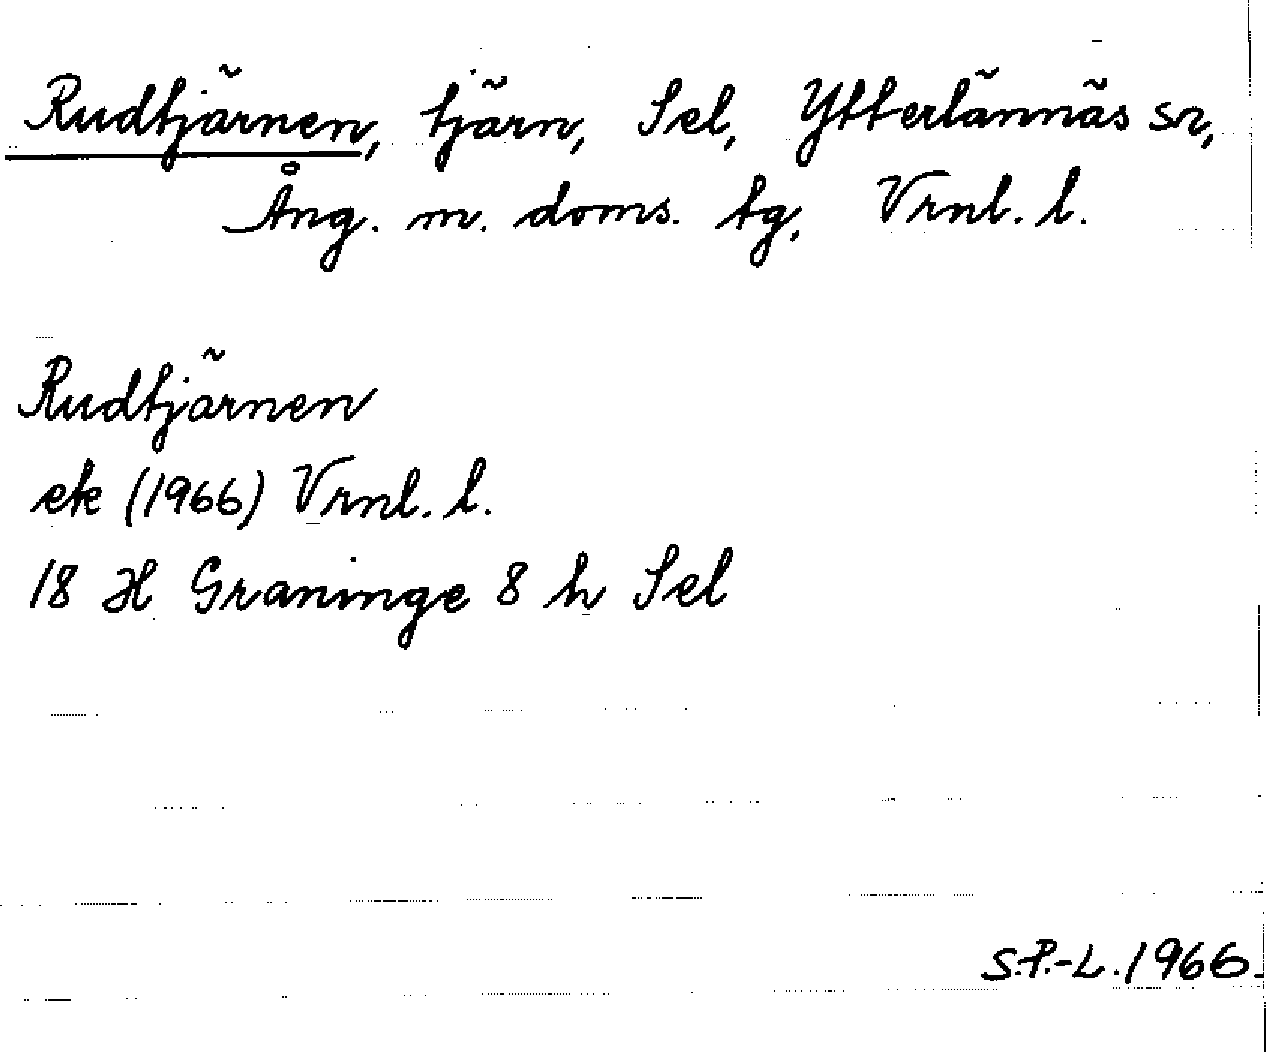 Rudtjärnen, tjärn, Sel, Ytterlännäs sn,
Ång. m. doms. tg, Vrnl. l.
Rudtjärnen
ek (1966) Vrnl. l.
18 H Graninge 8 h Sel
S.P.-L. 1966.